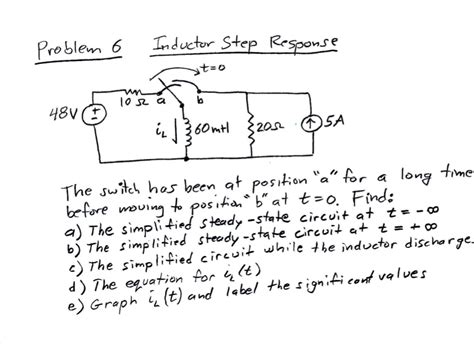 Problem 6 Inductor Step Response
t=0
10 Ω a b
48V + - iL ↓ 60mH 20Ω 5A
The switch has been at position "a" for a long time
before moving to position "b" at t=0. Find:
a) The simplified steady-state circuit at t = -∞
b) The simplified steady-state circuit at t = +∞
c) The simplified circuit while the inductor discharge.
d) The equation for iL(t)
e) Graph iL(t) and label the significant values